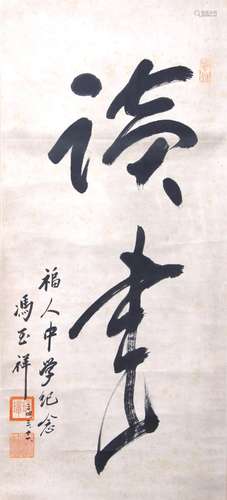 读书
福人中学纪念
冯玉祥